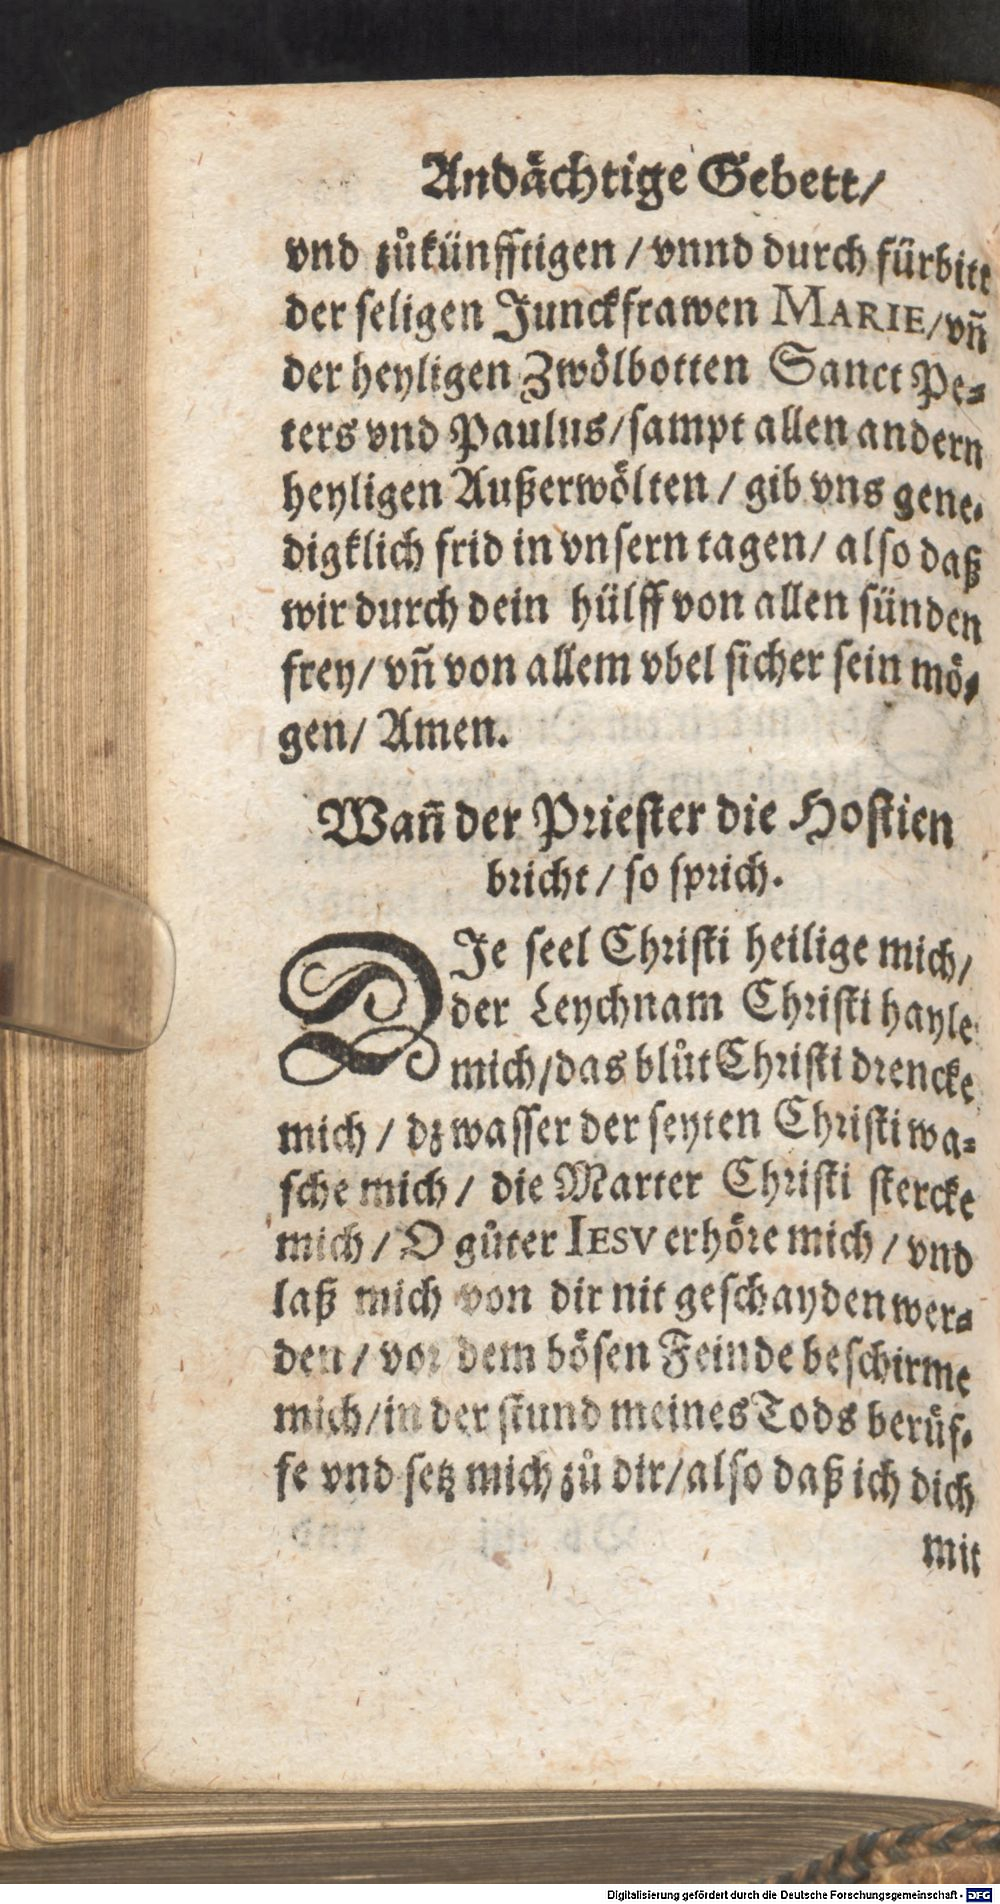 Andächtige Gebett/
vnd zůkünfftigen / vnnd durch fürbitt
der seligen Junckfrawen MARIE/vñ
der heyligen Zwölbotten Sanct Pe-
ters vnd Paulus/sampt allen andern
heyligen Außerwölten / gib vns gene-
digklich frid in vnsern tagen/ also daß
wir durch dein hülff von allen sünden
frey/ vñ von allem vbel sicher sein mö-
gen/ Amen.
Wañ der Priester die Hostien
bricht / so sprich.
DIe seel Christi heilige mich/
der Leychnam Christi hayle
mich/das blůt Christi drencke
mich / dz wasser der seyten Christi wa-
sche mich / die Marter Christi stercke
mich / O gůter IESV erhöre mich / vnd
laß mich von dir nit geschayden wer-
den / vor dem bösen Feinde beschirme
mich/in der stund meines Tods berüf-
fe vnd setz mich zů dir/also daß ich dich
mit
Digitalisierung gefördert durch die Deutsche Forschungsgemeinschaft - DFG